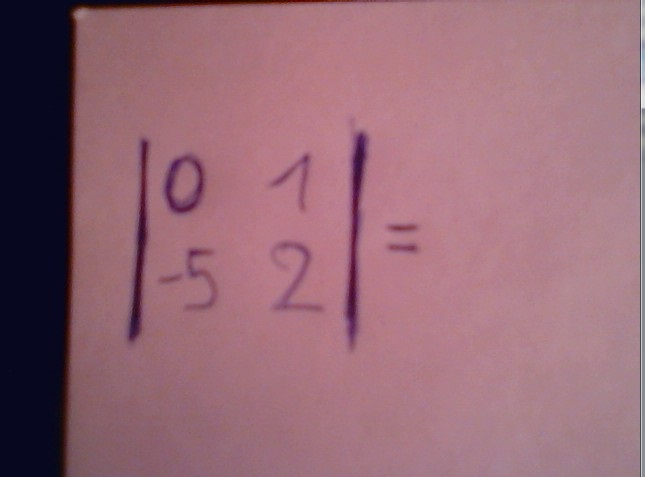 |0 1| =
|-5 2|